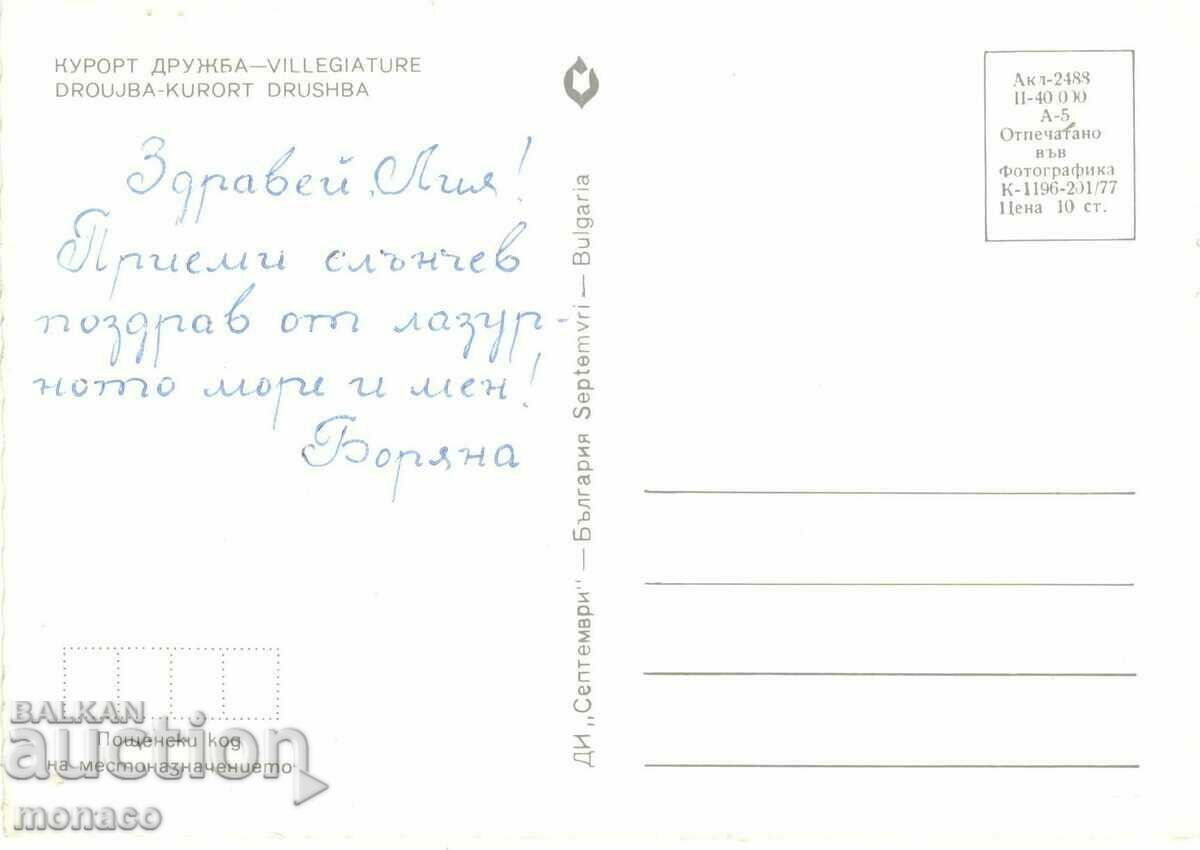 КУРОРТ ДРУЖБА—VILLEGIATURE
DROUJBA-KURORT DRUSHBA
Здравей, Лия!
Приеми слънчев
поздрав от лазур-
ното море и мен!
Боряна
Пощенски код
на местоназначението
ДИ „Септември" — България Septemvri — Bulgaria
Акл-2488
II-40 000
А-5
Отпечатано
във
Фотографика
К-1196-201/77
Цена 10 ст.
BALKAN
auction
monaco